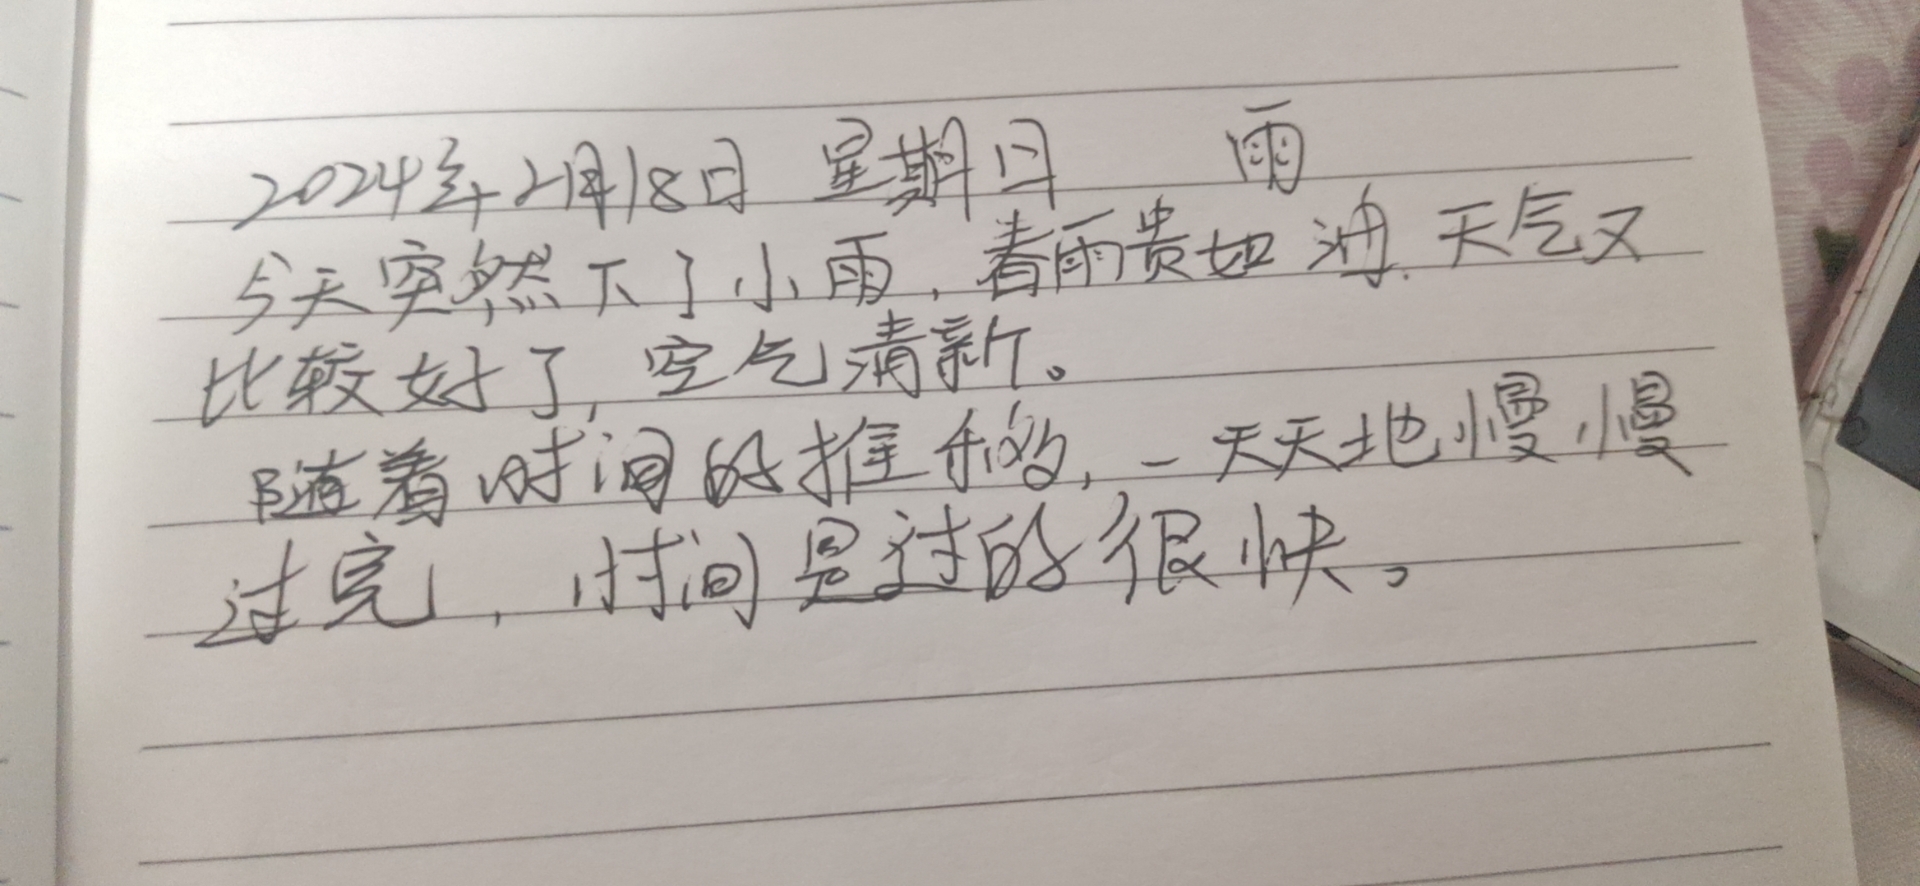 2024年2月18日 星期日 雨
今天突然下了小雨,春雨贵如油.天气又
比较好了,空气清新。
随着时间的推移,一天天地慢慢
过完,时间是过的很快。